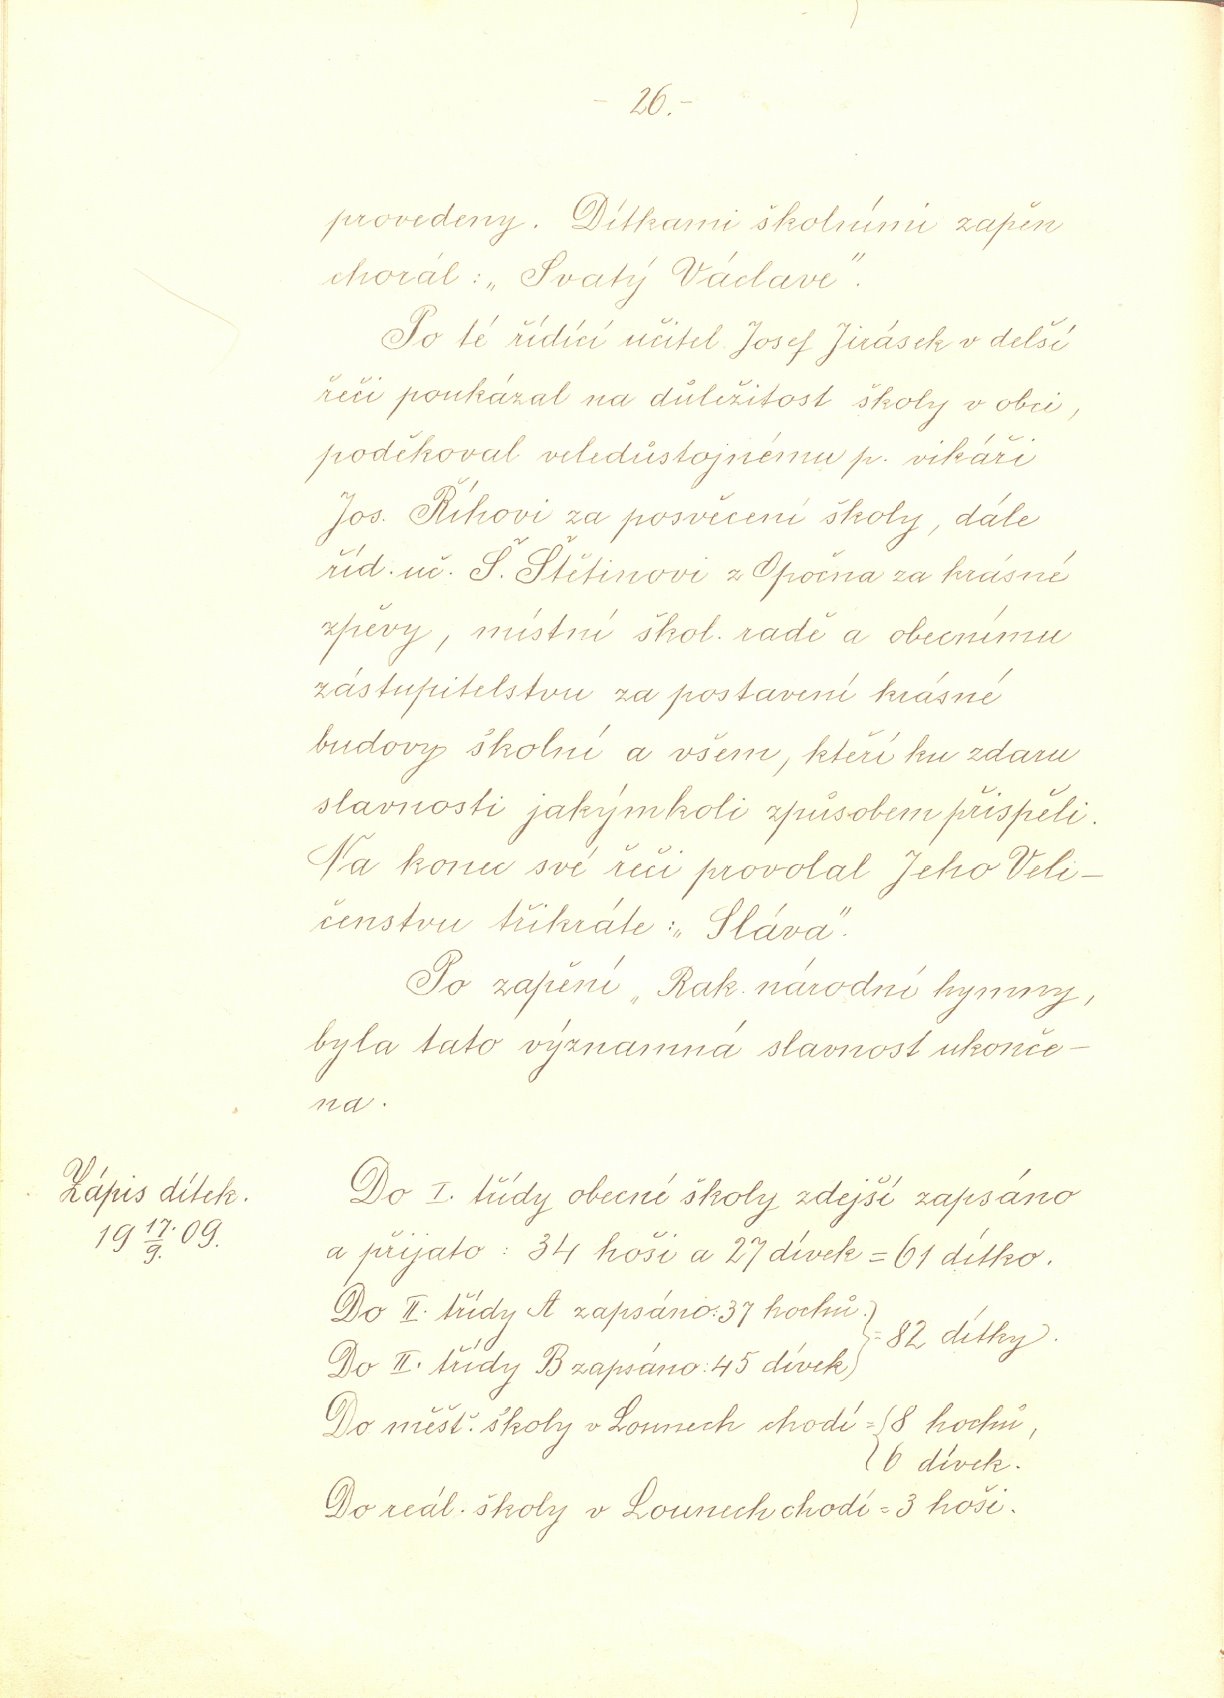 - 26. -
provedeny. Dítkami školními zapěn
chorál: „Svatý Václave".
Po té řídící učitel Josef Jirásek v delší
řeči poukázal na důležitost školy v obci,
poděkoval veledůstojnému p. vikáři
Jos. Říhovi za posvěcení školy, dále
říd. uč. Š. Štětinovi z Opočna za krásné
zpěvy, místní škol. radě a obecnímu
zástupitelstvu za postavení krásné
budovy školní a všem, kteří ku zdaru
slavnosti jakýmkoli způsobem přispěli.
Na konec své řeči provolal Jeho Veli-
čenstvu třikráte: „Sláva".
Po zapění „Rak. národní hymny,
byla tato významná slavnost ukonče-
na.
Zápis dítek.
19 17./9. 09.
Do I. třídy obecné školy zdejší zapsáno
a přijato: 34 hoši a 27 dívek = 61 dítko.
Do II. třídy A zapsáno: 37 hochů.
Do II. třídy B zapsáno: 45 dívek } = 82 dítky.
Do měšť. školy v Lounech chodí = { 8 hochů,
6 dívek.
Do reál. školy v Lounech chodí = 3 hoši.